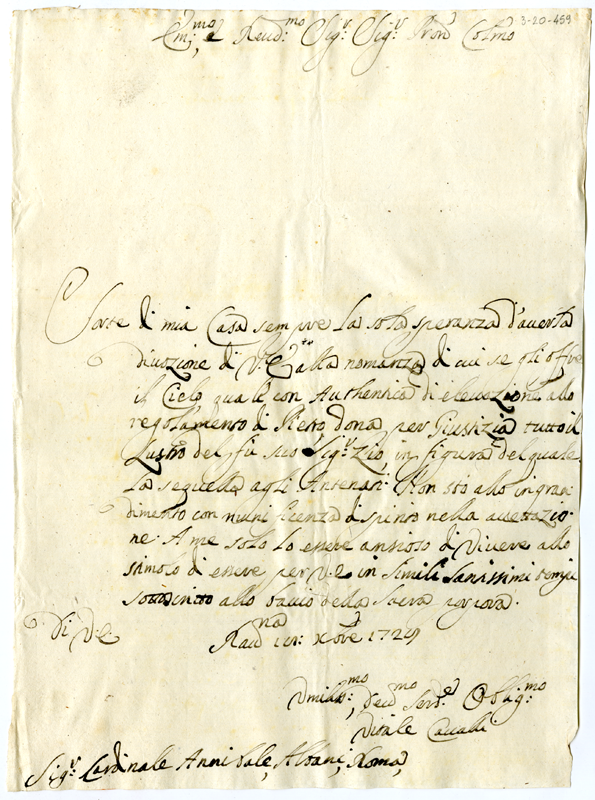 3-20-459
Em:mo e Reud:mo Sig:r Sig:r Pron Colmo
Forte di mia Casa sempre la sola speranza d'auerla
diuozione di V: E alla nomanza di cui se gli offre
il Cielo qual è con Authentica di eleuazione allo
regolamento di Pietro dona per Giustizia tutto il
Lustro del fu suo Sig:r Zio in figura del quale
la sequella agli Antenati. Non stò allo ingran
dimento con munificenza di spirito nella accettazio
ne. A me solo lo essere ansioso di Viuere allo
stimolo di essere per V.E in Simili Santissimi tempi
allo bacio della Sacra porpora.
Di V.E. Rauna Xbre 1729
Umilis:mo, Deu:mo Seru:e Oblig:mo
Vitale Caualli
Sig:r Cardinale Annibale Albani, Roma